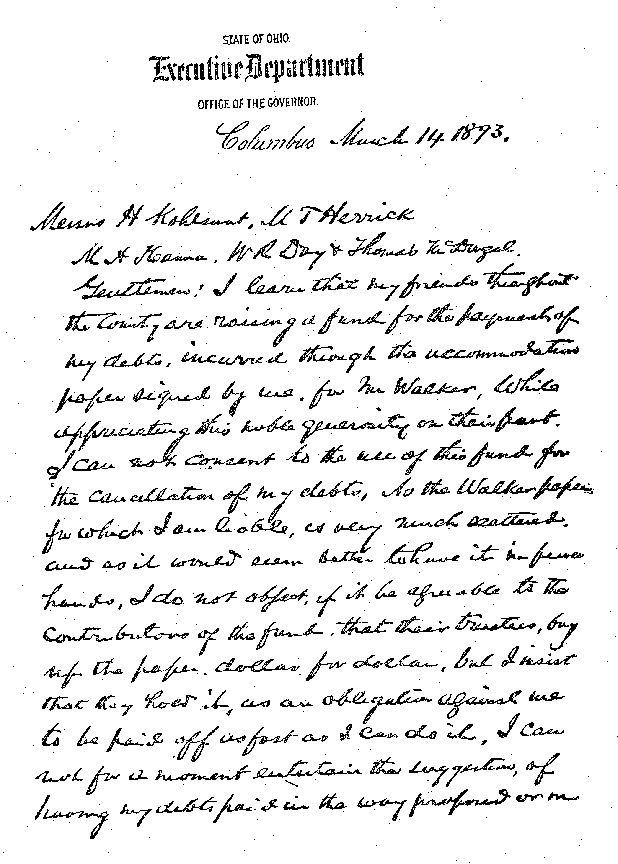 STATE OF OHIO.
Executive Department
OFFICE OF THE GOVERNOR.
Columbus March 14 1893.
Messrs H Kohlsaat, M T Herrick
M A Hanna, W R Day & Thomas McDougal.
Gentlemen: I learn that my friends throughout
the County are raising a fund for the payment of
my debts, incurred through the accommodation
paper signed by me, for Mr Walker, While
appreciating this noble generosity on their part.
I can not consent to the use of this fund for
the cancellation of my debts, As the Walker paper
for which I am liable, is very much scattered,
and as it would seem better to have it in fewer
hands, I do not object, if it be agreeable to the
contributors of the fund, that their trustees, buy
up the paper, dollar for dollar, but I insist
that they hold it, as an obligation against me
to be paid off as fast as I can do it, I can
not for a moment entertain the suggestion, of
having my debts paid in the way proposed or in